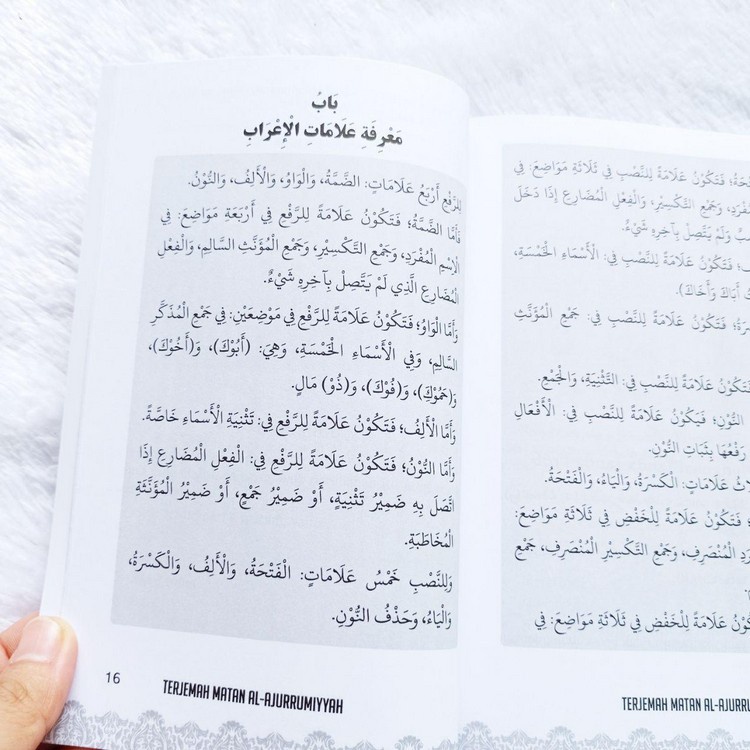 بَابُ
مَعْرِفَةِ عَلَامَاتِ الْإِعْرَابِ
لِلرَّفْعِ أَرْبَعُ عَلَامَاتٍ: الضَّمَّةُ، وَالْوَاوُ، وَالْأَلِفُ، وَالنُّوْنُ.
فَأَمَّا الضَّمَّةُ؛ فَتَكُوْنُ عَلَامَةً لِلرَّفْعِ فِي أَرْبَعَةِ مَوَاضِعَ: فِي
الْاِسْمِ الْمُفْرَدِ، وَجَمْعِ التَّكْسِيْرِ، وَجَمْعِ الْمُؤَنَّثِ السَّالِمِ، وَالْفِعْلِ
الْمُضَارِعِ الَّذِي لَمْ يَتَّصِلْ بِآخِرِهِ شَيْءٌ.
وَأَمَّا الْوَاوُ؛ فَتَكُوْنُ عَلَامَةً لِلرَّفْعِ فِي مَوْضِعَيْنِ: فِي جَمْعِ الْمُذَكَّرِ
السَّالِمِ، وَفِي الْأَسْمَاءِ الْخَمْسَةِ، وَهِيَ: (أَبُوْكَ)، وَ(أَخُوْكَ)،
وَ(حَمُوْكَ)، وَ(فُوْكَ)، وَ(ذُوْ) مَالٍ.
وَأَمَّا الْأَلِفُ؛ فَتَكُوْنُ عَلَامَةً لِلرَّفْعِ فِي: تَثْنِيَةِ الْأَسْمَاءِ خَاصَّةً.
وَأَمَّا النُّوْنُ؛ فَتَكُوْنُ عَلَامَةً لِلرَّفْعِ فِي: الْفِعْلِ الْمُضَارِعِ إِذَا
اتَّصَلَ بِهِ ضَمِيْرُ تَثْنِيَةٍ، أَوْ ضَمِيْرُ جَمْعٍ، أَوْ ضَمِيْرُ الْمُؤَنَّثَةِ
الْمُخَاطَبَةِ.
وَلِلنَّصْبِ خَمْسُ عَلَامَاتٍ: الْفَتْحَةُ، وَالْأَلِفُ، وَالْكَسْرَةُ،
وَالْيَاءُ، وَحَذْفُ النُّوْنِ.
16
TERJEMAH MATAN AL-AJURRUMIYYAH
فَتَكُوْنُ عَلَامَةً لِلنَّصْبِ فِي ثَلَاثَةِ مَوَاضِعَ: فِي
وَجَمْعِ التَّكْسِيْرِ، وَالْفِعْلِ الْمُضَارِعِ إِذَا دَخَلَ
وَلَمْ يَتَّصِلْ بِآخِرِهِ شَيْءٌ.
فَتَكُوْنُ عَلَامَةً لِلنَّصْبِ فِي: الْأَسْمَاءِ الْخَمْسَةِ،
أَبَاكَ وَأَخَاكَ).
فَتَكُوْنُ عَلَامَةً لِلنَّصْبِ فِي: جَمْعِ الْمُؤَنَّثِ
عَلَامَةً لِلنَّصْبِ فِي: التَّثْنِيَةِ، وَالْجَمْعِ.
النُّوْنِ؛ فَيَكُوْنُ عَلَامَةً لِلنَّصْبِ فِي: الْأَفْعَالِ
رَفْعُهَا بِثَبَاتِ النُّوْنِ.
عَلَامَاتٍ: الْكَسْرَةُ، وَالْيَاءُ، وَالْفَتْحَةُ.
فَتَكُوْنُ عَلَامَةً لِلْخَفْضِ فِي ثَلَاثَةِ مَوَاضِعَ:
الْمُنْصَرِفِ، وَجَمْعِ التَّكْسِيْرِ الْمُنْصَرِفِ، جَمْعِ
عَلَامَةً لِلْخَفْضِ فِي ثَلَاثَةِ مَوَاضِعَ: فِي
TERJEMAH MATAN